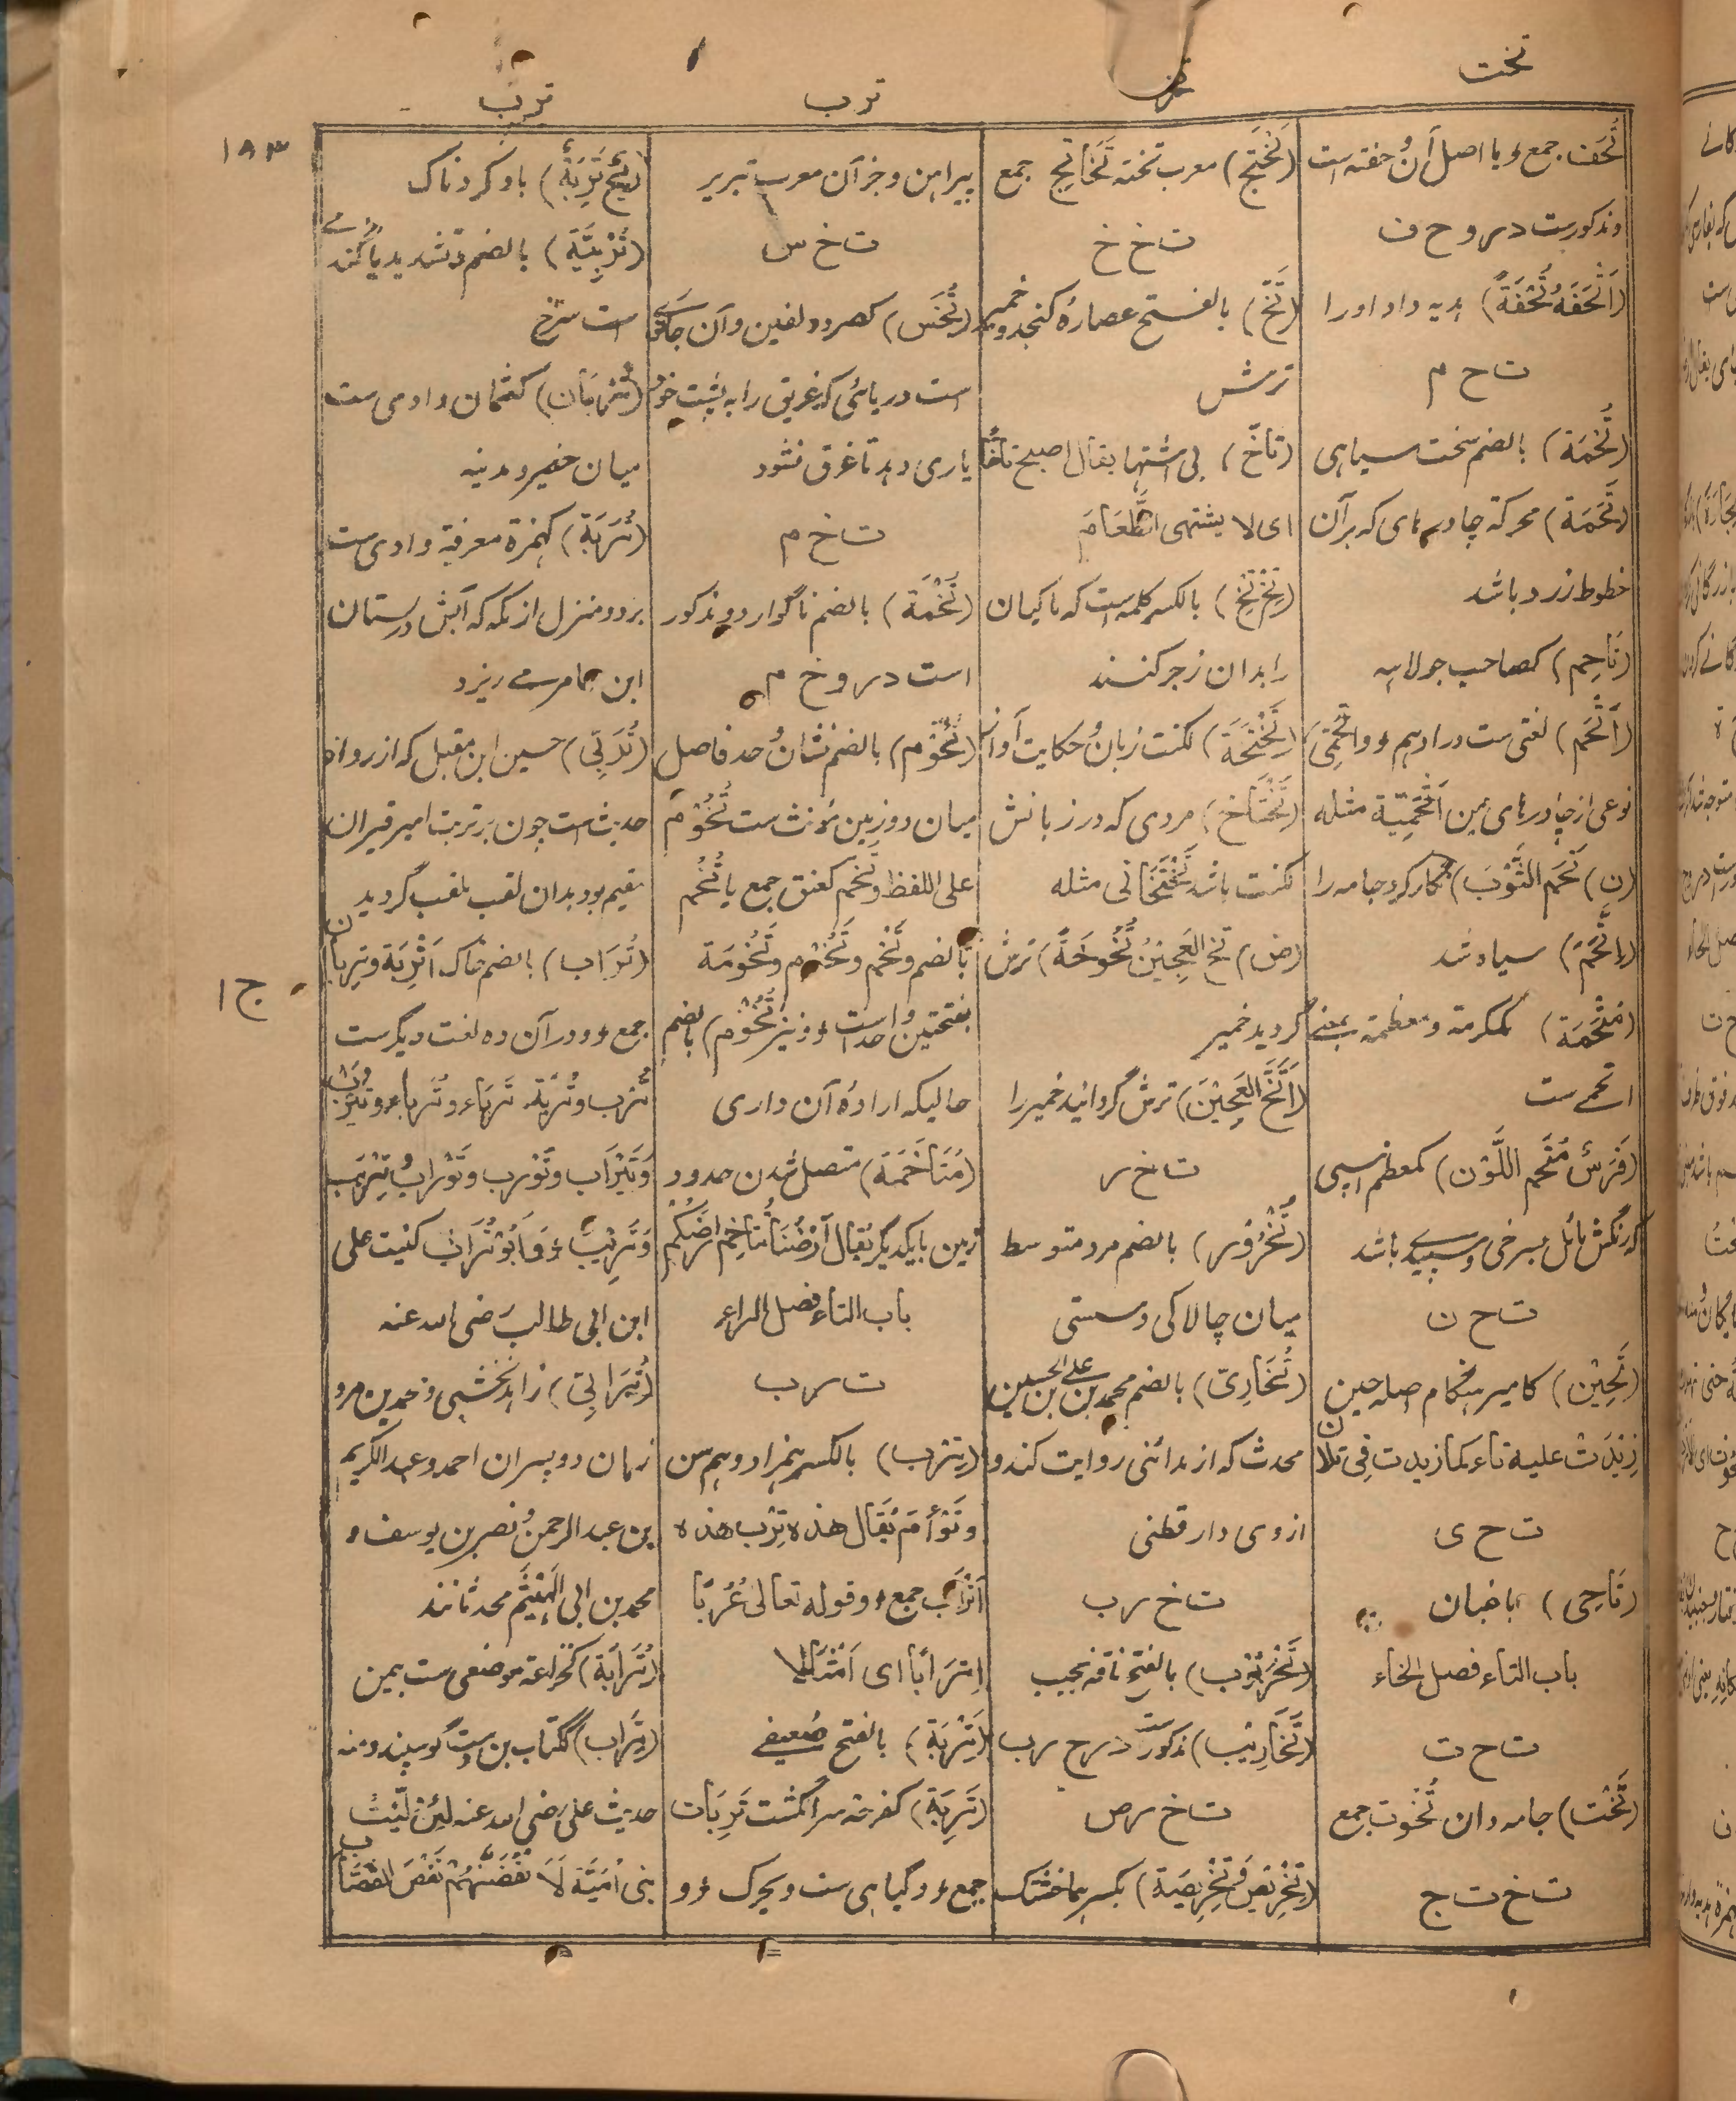 تخت
تخر
ترب
ترب
۱۹۳
تُحَف جمع و یا اصل آن وُحفته است
و مذکورست در و ح ف
(اَتْحَفَهُ تُحْفَةً) هدیه داد اورا
ت ح م
(تُحْمَة) بالضم سخت سیاهی
(تَحَمَة) محرکة چادرهای که برآن
خطوط زرد باشد
(تَاحِم) کصاحب جولاهه
(اَتْحَم) لغتی ست در ادهم و اَتْحَمِیّ
نوعی از چادرهای یمن اَتْحَمِیَّة مثله
(ن) تَحَم الثَّوْبَ) نگار کرد جامه را
(اِتْحَمَّ) سیاه شد
(مُتْحَمَة) کمکرمة و معظمة بمعنی
اتحمے ست
(فَرَسٌ مُتَحَّم اللَّوْن) کمعظم اسپی
که رنگش مائل بسرخی و سپیدے باشد
ت ح ن
(تَحِیْن) کامیر هنگام اصله حین
زِیْدَتْ علیه تاء کما زیدت فِی تلان
ت ح ی
(تَاحِی) باغبان
باب التاء فصل الخاء
ت خ ت
(تَخْت) جامه دان تُخُوت جمع
ت خ ت ج
(تَخْتَج) معرب تخته تَخَاتِج جمع
ت خ خ
(تَخّ) بالفتح عصارۂ کنجد و خمیر
ترش
(تَاخّ) بی اشتها یقال اصبح تاخًّا
ای لا یشتهی الطَّعَامَ
(تِخْ تِخْ) بالکسر کلمه ست که ماکیان
را بدان زجر کنند
(تَخْتَخَة) لکنت زبان و حکایت آواز
(تَخْتَاخ) مردی که در زبانش
لکنت باشد تَخْتَخَانی مثله
(ض) تخ العَجِیْنُ تُخُوخَةً) ترش
گردید خمیر
(اَتَخَّ العَجِیْنَ) ترش گردانید خمیر را
ت خ ر
(تُخْرُوْر) بالضم مرد متوسط
میان چالاکی و سستی
(تُخَارِیّ) بالضم محمد بن علی بن الحسین
محدث که از مدائنی روایت کند و
ازوی دار قطنی
ت خ ر ب
(تَخْرَبُوْب) بالفتح ناقه نجیب
(تَخَارِیْب) مذکورست در خ ر ب
ت خ ر ص
(تِخْرِیْص و تِخْرِیْصَة) بکسر هما خشتک
پیراهن و جز آن معرب تیریز
ت خ س
(تُخَس) کصرد دلفین و آن جانوری
است دریائی که غریق را به پشت خود
یاری دهد تا غرق نشود
ت خ م
(تُخْمَة) بالضم ناگوارد و مذکور
است در و خ م
(تُخُوْم) بالضم نشان و حد فاصل
میان دو زمین مؤنث ست تُخُوْم
علی اللفظ و تُخُم کعنق جمع یا تُخُم
بالضم و تَخْم و تَخُوْم و تَخُوْمَة
بفتحتین واحد است و نیز تُخُوْم) بالضم
حالیکه ارادۂ آن داری
(مُتَاخَمَة) متصل شدن حدود
زمین بایکدیگر یُقال اَرْضُنَا تُتَاخِم اَرْضَکُم
باب التاء فصل الراء
ت ر ب
(تِرْب) بالکسر همزاد و هم سن
و تَوْأَم یُقَال هذه تِرْب هذه
اَتْرَاب جمع و قوله تعالیٰ عُرُبًا
اَتْرَابًا ای اَمْثَالًا
(تَرْبَة) بالفتح ضعیفے
(تَرِبَة) کفرحة سر انگشت تَرِبَات
جمع و گیاهی ست و یحرک و و
(رِیْحٌ تَرِبَةٌ) باد گردناک
(تُرْبِیَّة) بالضم و تشدید یا گندمے
است سرخ
(تُرْبَان) کعثمان وادی ست
میان حفیر و مدینه
(تُرَبَة) کهمزة معرفة وادی ست
بر دو منزل از مکه که آبش در بستان
ابن عامر مے ریزد
(تُرَبِیّ) حسین ابن مقبل که از رواة
حدیث ست چون بر تربت امیر قیزان
مقیم بود بدان لقب ملقب گردید
(تُرَاب) بالضم خاک اَتْرِبَة و تِرْبان
جمع و در آن ده لغت دیگرست
تُرْب و تُرْبَة و تَرْبَاء و تُرَبَاء و تَیْرَب
وَ تَیْرَاب و تَوْرَب و تَوْرَاب و تِرْیَب
وَ تَرِیْب و اَبُوْ تُرَاب کنیت علی
ابن ابی طالب رضی الله عنه
(تُرَابِیّ) زاهد نخشبی و محمد بن مرو
زمان و دو پسران احمد و عبدالکریم
بن عبدالرحمن و نصر بن یوسف و
محمد بن ابی الهَیْثَم محدثانند
(تُرَابَة) کخزاعة موضعی ست بیمن
(تِرَاب) ککتاب بن دست گوسپند و منه
حدیث علی رضی الله عنه لَئِنْ لِّیْتُ
بنی اُمَیَّة لَاَنْفُضَنَّهُمْ نَفْضَ القَصَّاب
ج ۱